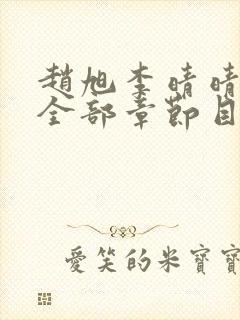 趙旭李晴晴
全部章節目
愛笑的米寶寶